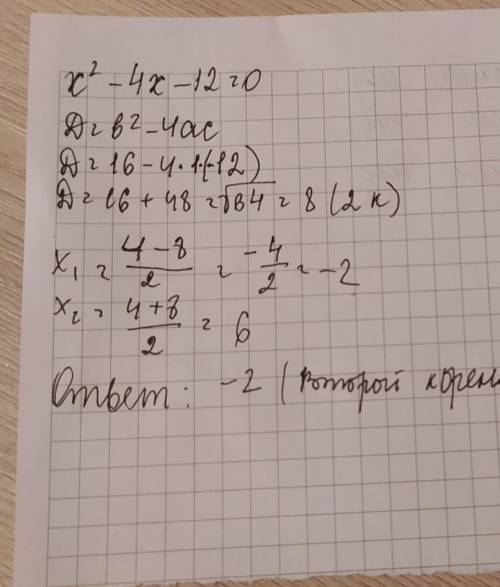 x² - 4x - 12 = 0
D = b² - 4ac
D = 16 - 4·1·(-12)
D = 16 + 48 = √64 = 8 (2 к)
x₁ = (4-8)/2 = -4/2 = -2
x₂ = (4+8)/2 = 6
Ответ: -2 (второй корен